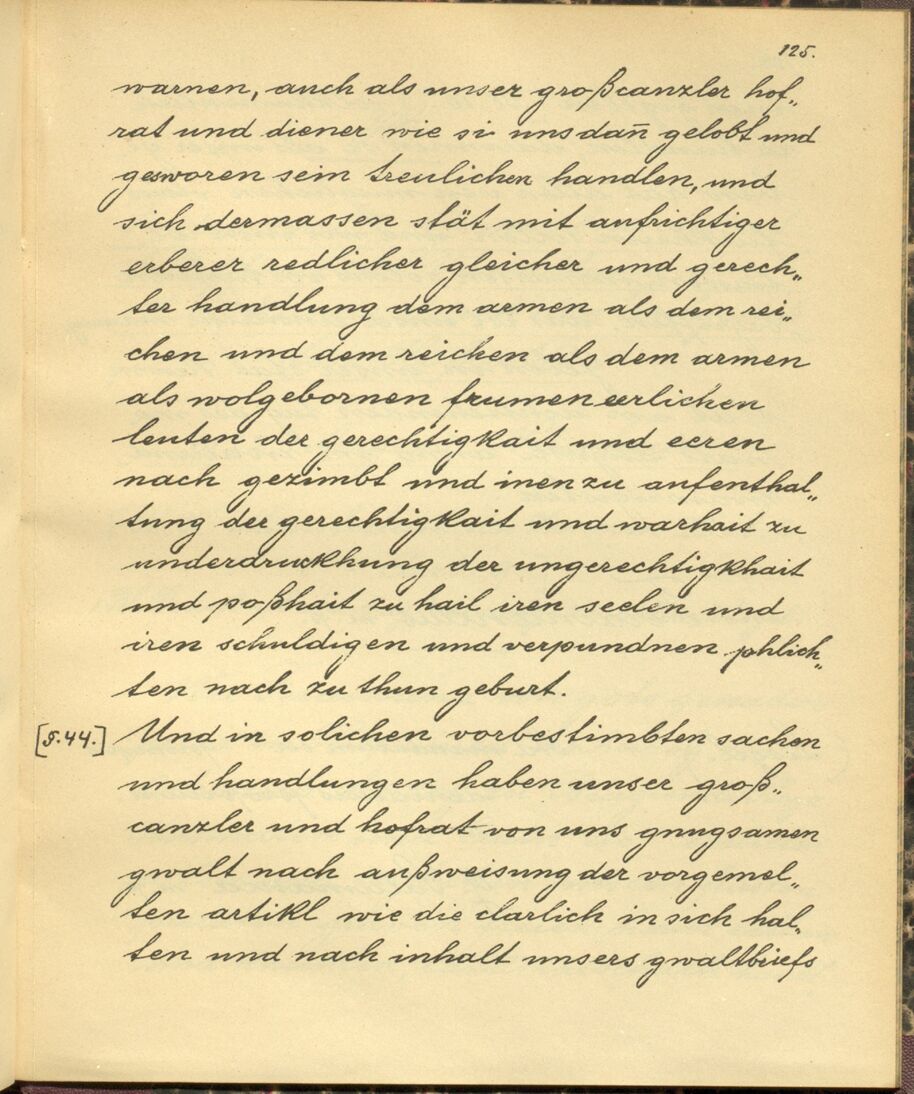 125.
warnen, auch als unser großcanzler hof„
rat und diener wie si uns dan̄ gelobt und
gesworen sein treulichen handlen, und
sich dermassen stät mit aufrichtiger
erberer redlicher gleicher und gerech„
ter handlung dem armen als dem rei„
chen und dem reichen als dem armen
als wolgebornen frumen eerlichen
leuten der gerechtigkait und eeren
nach gezimbt und inen zu aufenthal„
tung der gerechtigkait und warhait zu
underdruckhung der ungerechtigkhait
und poßhait zu hail iren seelen und
iren schuldigen und verpundnen phlich„
ten nach zu thun geburt.
[§.44.] Und in solichen vorbestimbten sachen
und handlungen haben unser groß„
canzler und hofrat von uns gnugsamen
gwalt nach außweisung der vorgemel„
ten artikl wie die clarlich in sich hal„
ten und nach inhalt unsers gwaltbriefs